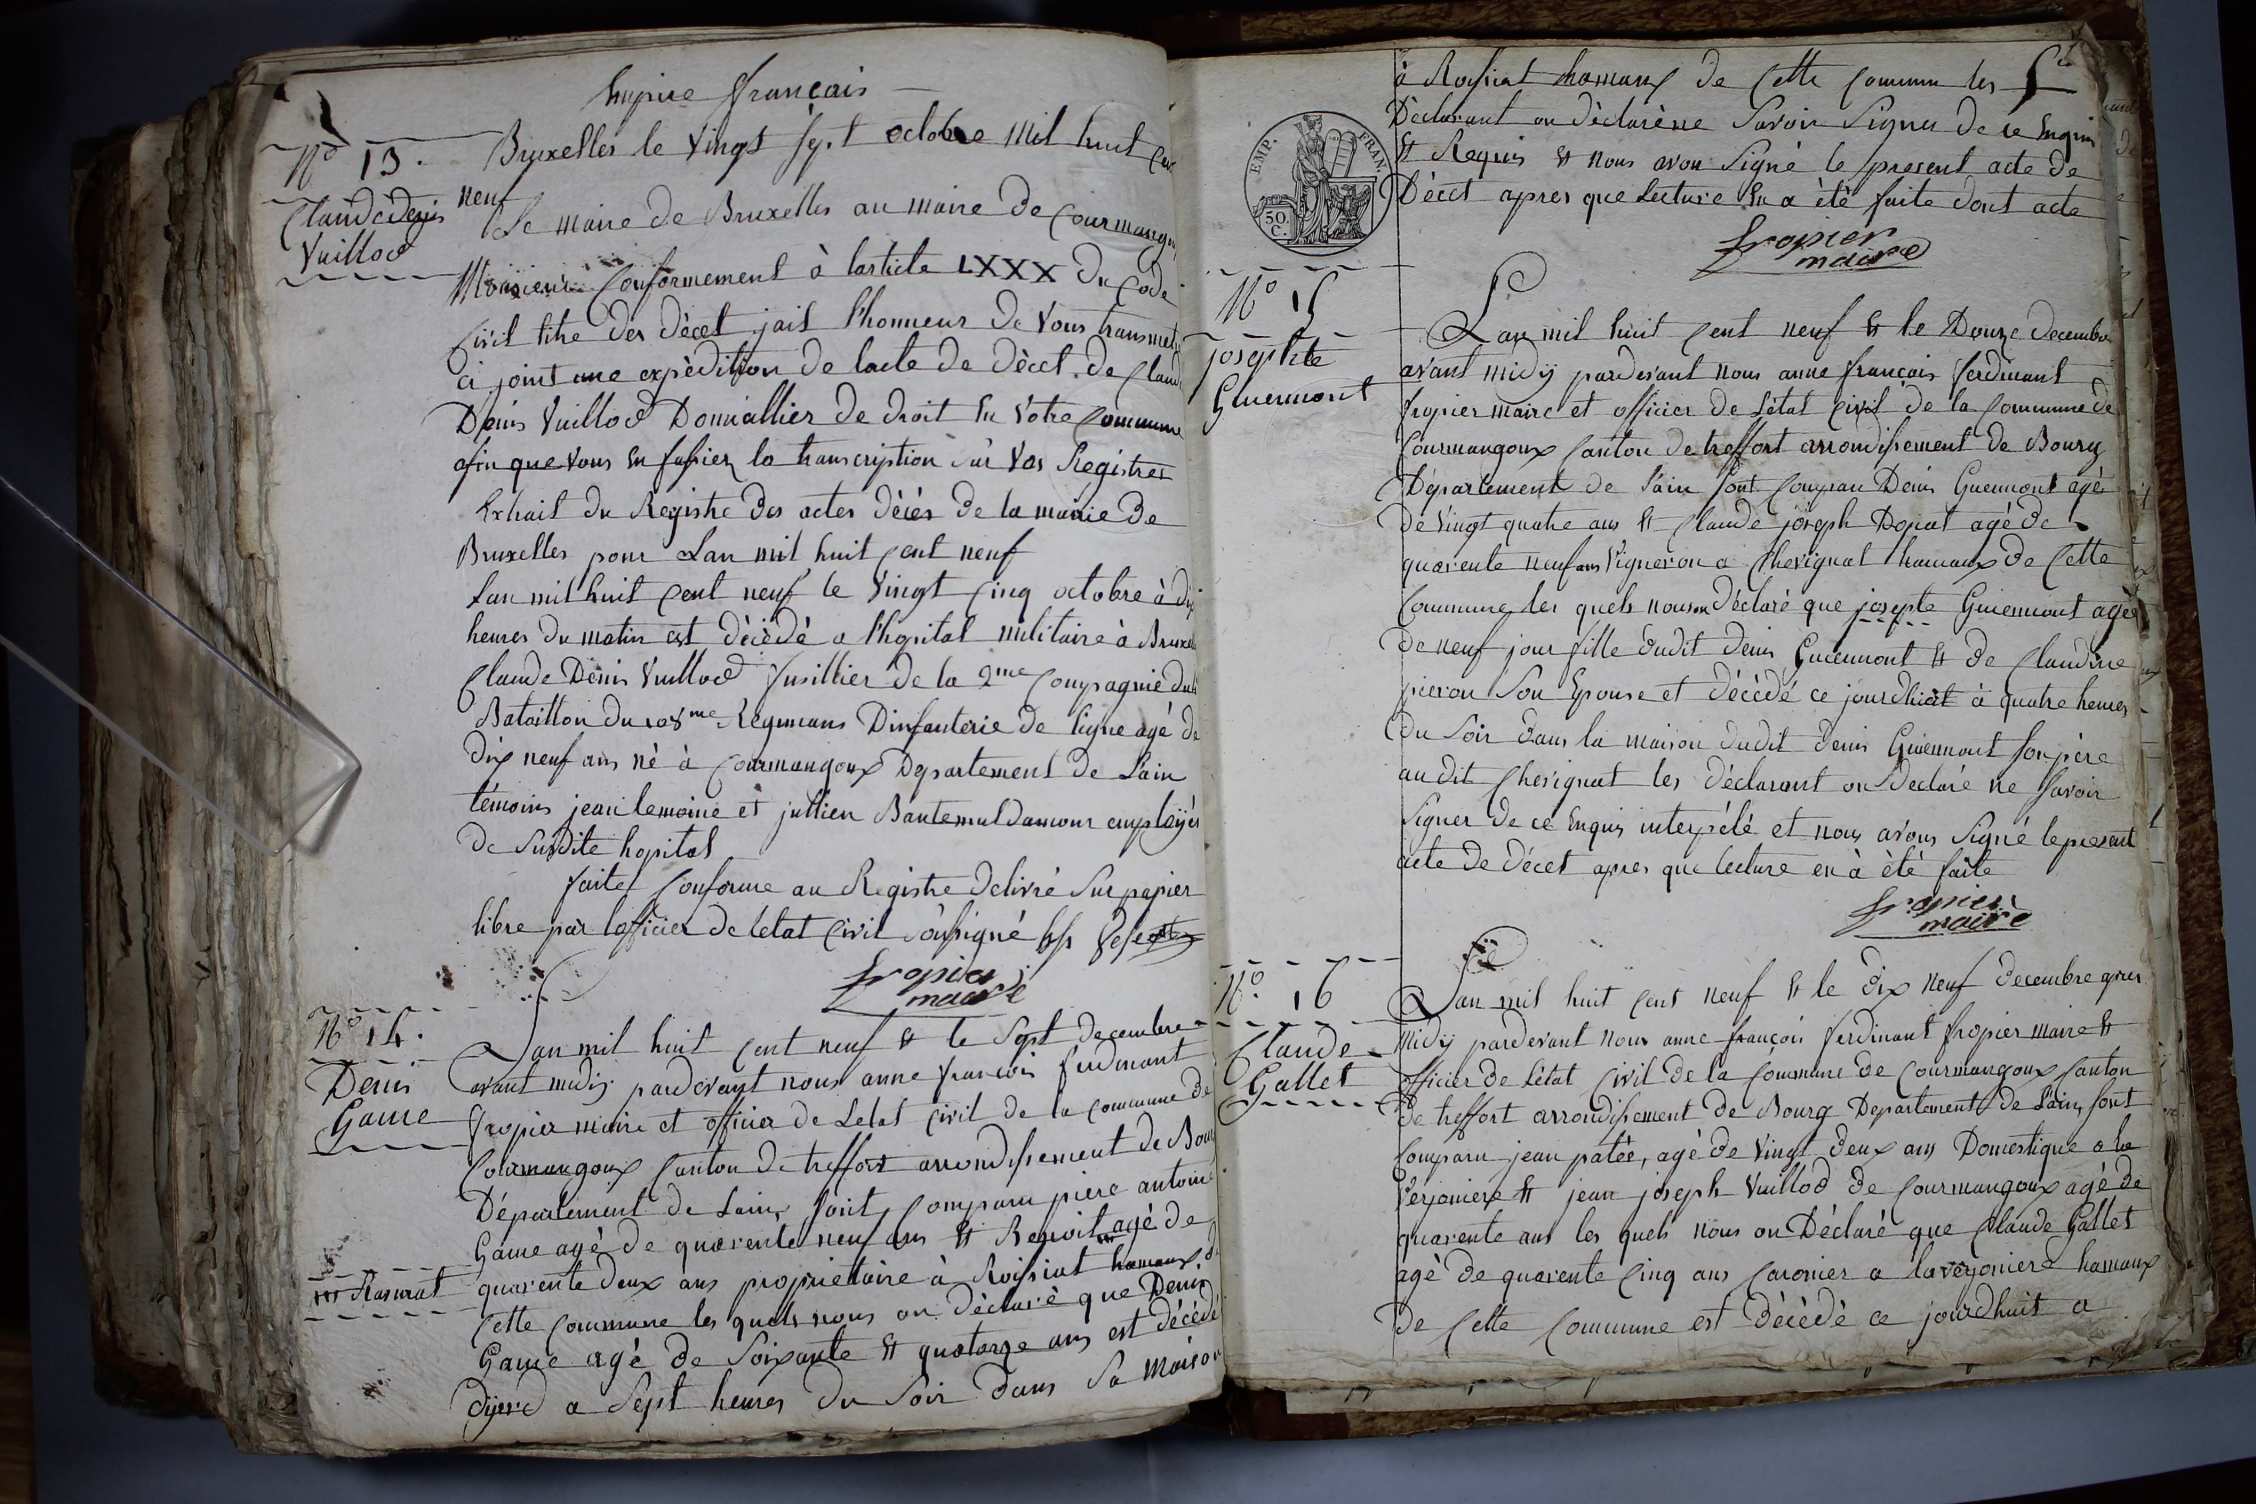 Empire français
N° 13.
Claude denis
Vuillod
Bruxelles le vingt sept octobre mil huit cen
neuf
Le maire de Bruxelles au maire de Courmangou
Monsieur Conformement à larticle LXXX du Code
Civil titre des décet jait lhonneur de vous transmet
ci joint une expédition de lacte de décet de Claud
Denis Vuillod Domiallier de droit en votre Commune
afin que vous en fassiez la transcription sur vos Registres
Extrait du Registre des actes décés de la mairie de
Bruxelles pour Lan mil huit cent neuf
Lan mil huit cent neuf le vingt cinq octobre à dix
heures du matin est décédé a lhopital militaire à Bruxel
Claude Denis Vuillod fusillier de la 2me Compagnie du
Bataillon du 108me Regimans Dinfanterie de ligne agé de
dix neuf ans né à Courmangoux Departement de Lain
témoins jean lemoine et jullien Bautemuldamour employés
de susdite hopital
faite Conforme au Registre delivré sur papier
libre par lofficier de létat Civil soussigné
fropier
maire
N° 14.
Denis
Game
Lan mil huit cent neuf et le sept decembre
avant midy pardevant nous anne françois ferdinant
fropier maire et officier de Letat civil de la commune de
Courmangoux Canton de treffort arrondissement de Bour
Département de Lain, sont comparu piere antoine
Game agé de quarente neuf ans et Benoit agé de
Rasurat
quarente deux ans proprietaire à Roissiat hamaux d
Cette Commune les quels nous on déclaré que Denis
Game agé de soixante et quatorze ans est décédé
dijerd a sept heures du soir dans sa maison
à Roissiat hamaux de Cette Commune les
Déclarant on déclarène savoir signer de ce enquis
et Requis et nous avon signé le present acte de
Décet apres que lecture en a été faite dont acte
fropier
maire
EMP. FRAN.
50.
C.
N° 15
josephte
Guermont
Lan mil huit cent neuf et le Douze decembre
avant midy pardevant nous anne françois ferdinant
fropier maire et officier de létat civil de la Commune de
Courmangoux Canton de treffort arrondissement de Bourg
Département de Lain sont Comparu Denis Guermont agé
de vingt quatre ans et Claude joseph Dopat agé de
quarente neuf ans vigneron a Chevignat hamaux de Cette
Commune les quels nous on déclaré que josepte Guiermont agée
de neuf jour fille dudit denis Guiermont et de Claudine
pieron son Epouse et décédé ce jourdhuit à quatre heures
du soir dans la maison dudit denis Guiermont son père
au dit Chevignat les déclarant on declaré ne savoir
signer de ce enquis interpélé et nous avons signé le present
acte de décet apres que lecture en à été faite
fropier
maire
N° 16
Claude
Gallet
Lan mil huit cent neuf et le dix neuf decembre apres
midy pardevant nous anne françois ferdinant fropier maire et
officier de létat Civil de la Commune de Courmangoux Canton
de treffort arrondissement de Bourg Departement de Lain, sont
Comparu jean patée, agé de vingt deux ans Domestique a la
verjoniere et jean joseph Vuillod de Courmangoux agé de
quarente ans les quels nous on Déclaré que Claude Gallet
agé de quarente cinq ans a laverjoniere hamaux
de Cette Commune est décédé ce jourdhuit a